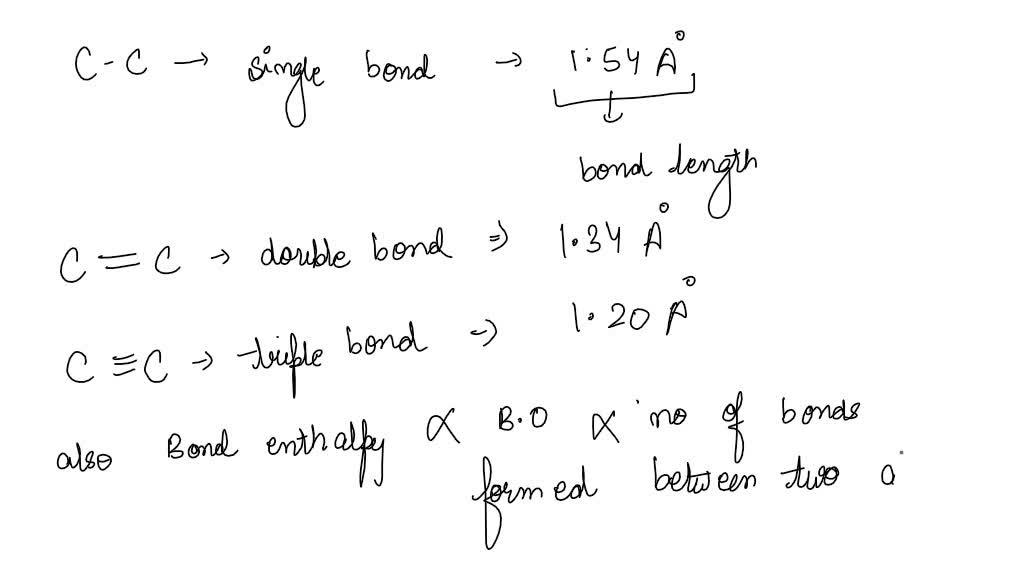 C - C → single bond → 1.54 A°
bond length
C = C → double bond ⇒ 1.34 A°
C ≡ C → triple bond ⇒ 1.20 A°
also Bond enthalpy ∝ B.O ∝ no of bonds
formed between two a